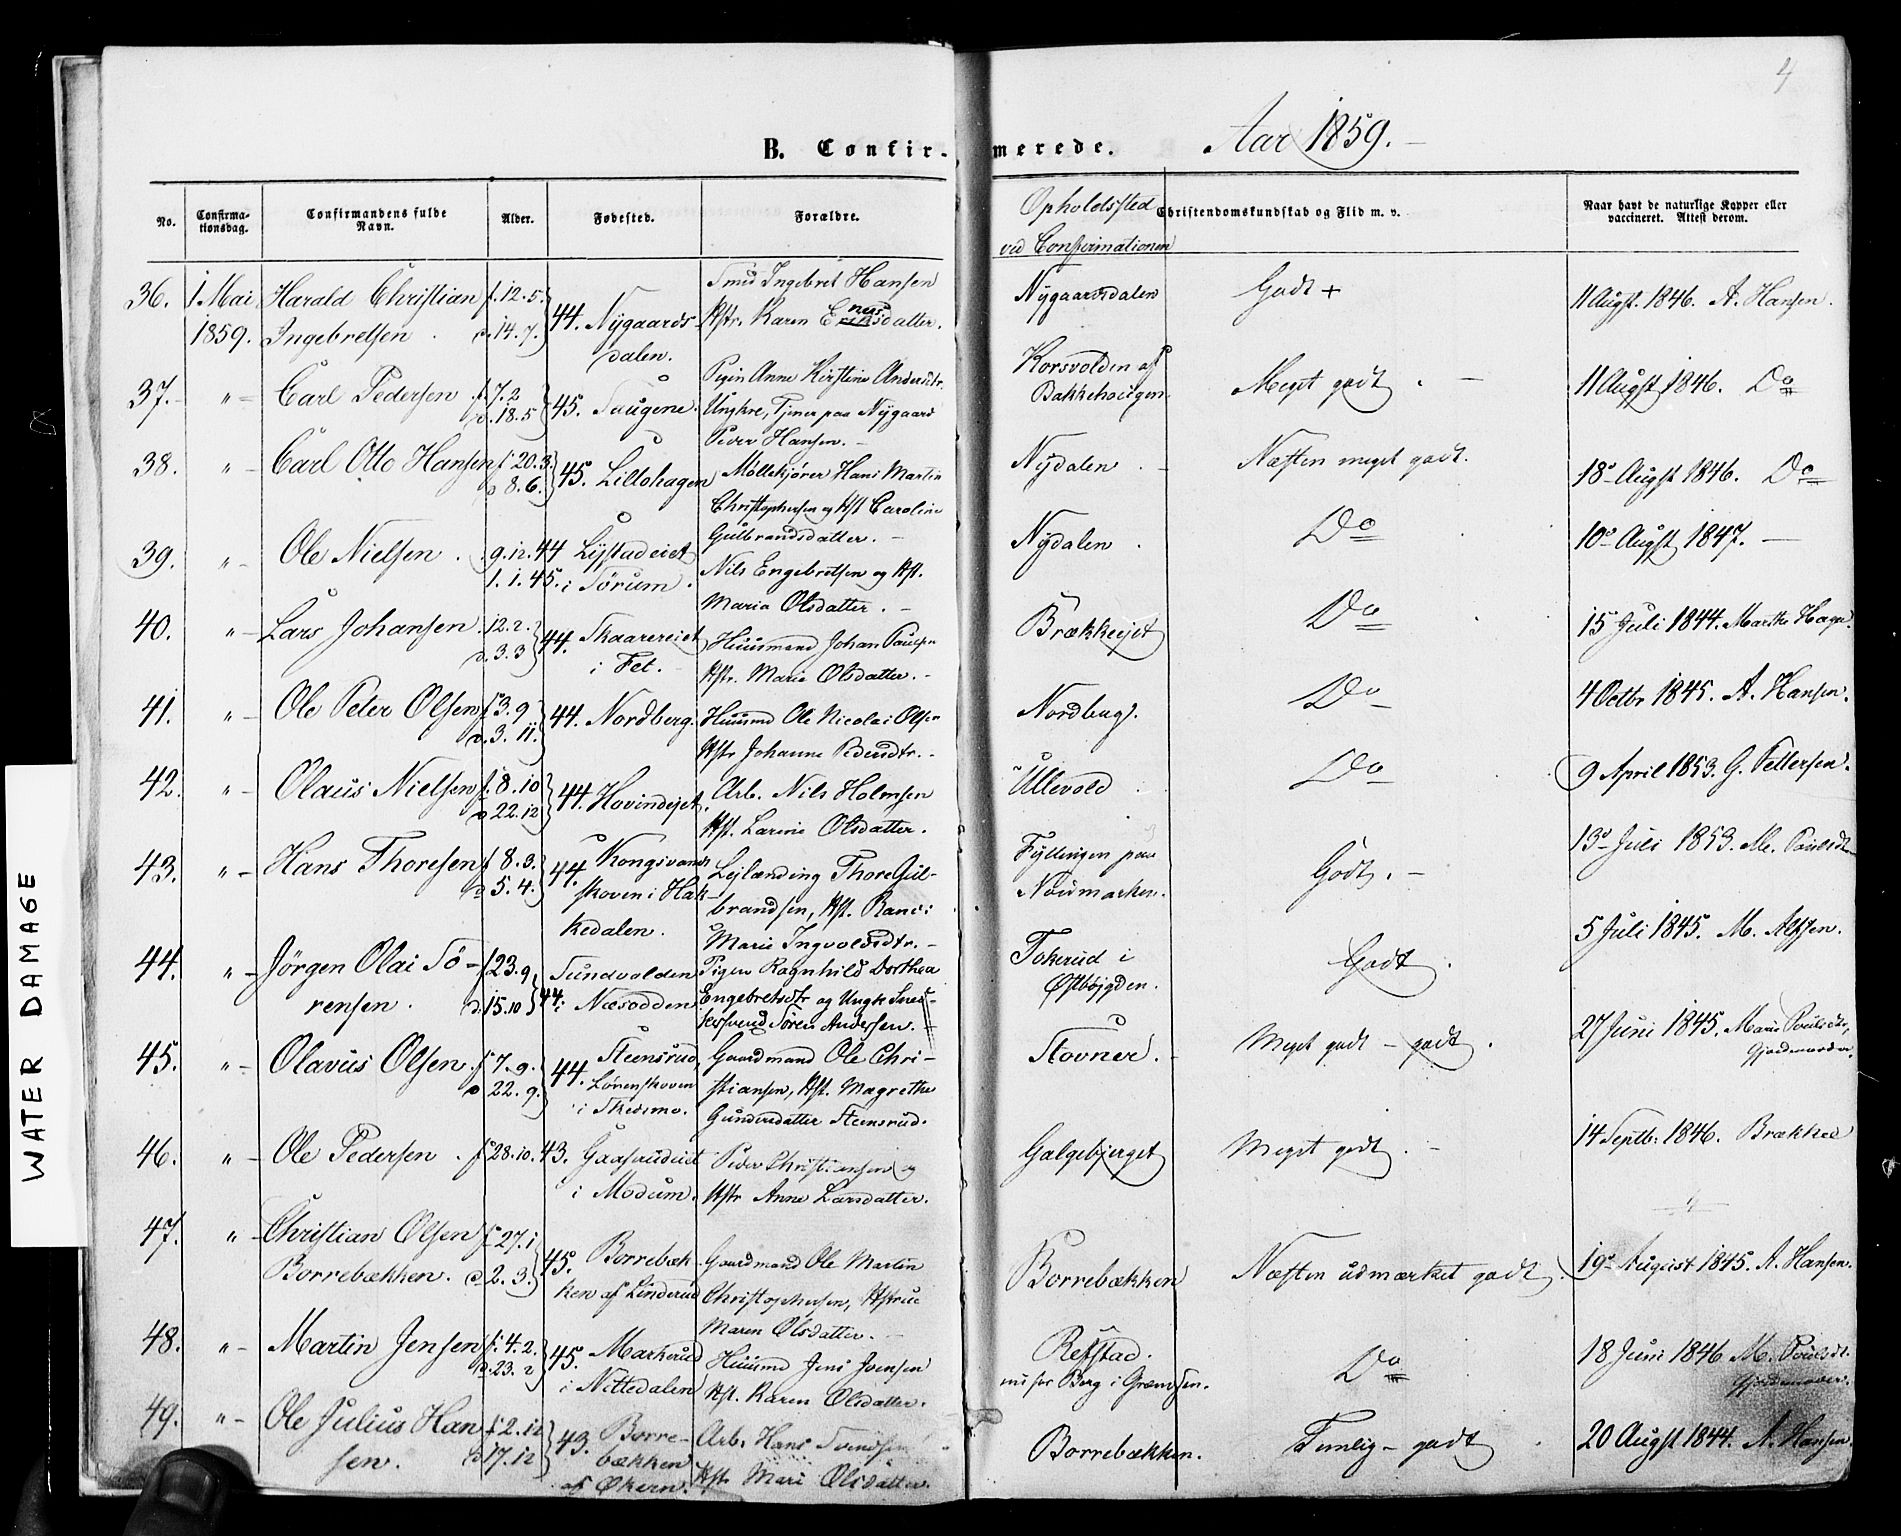 4
B. Confir-merede. Aar 1859.
No. Confirma-tionsdag. Confirmandens fulde Navn. Alder. Fødested. Forældre. Opholdssted ved Confirmationen Christendomskundskab og Flid m. v. Naar havt de naturlige Kopper eller vaccineret. Attest derom.
36. 1 Mai 1859. Harald Christian Ingebretsen. f. 12.5. d. 14.7. 44. Nygaards dalen. Smed Ingebret Hansen Hstr. Karen Eriksdatter. Nygaardsdalen Godt + 11 Augst. 1846. A. Hansen.
37. " Carl Pedersen f. 7.2 d. 18.5 45. Saugene. Pigen Anne Kirstine Andersdtr. Ungkre, Tjener paa Nygaard Peder Hansen. Korsvolden af Bakkehougen. Meget godt. 11 Augst 1846. Do
38. " Carl Otto Hansen f. 20.3. d 8.6. 45. Lillohagen Møllekjører Hans Martin Christophersen og Hst Caroline Gulbrandsdatter. Nydalen Næsten meget godt. 18 Augst 1846. Do
39. " Ole Nielsen. 9.12.44 1.1.45. Lystadeiet i Sørum. Nils Engebretsen og Hst. Maria Olsdatter. Nydalen Do 10 Augst 1847.
40. " Lars Johansen. 12.2. d. 3.3 44. Skaarereiet i Fet. Huusmand Johan Paulsen Hstr. Marie Olsdatter. Brækkeejet Do 15 Juli 1844. Marthe Hagen.
41. " Ole Peter Olsen f. 3.9 d. 3.11. 44. Nordberg. Huusmd Ole Nicolai Olsen Hstr Johanne Pedersdtr. Nordberg. Do 4 Octbr 1845. A. Hansen.
42. " Olaus Nielsen f. 8.10 d 22.12 44. Hovindejet. Arb. Nils Holmsen Hst. Larine Olsdatter. Ullevold Do 9 April 1853. G. Pettersen.
43. " Hans Thoresen f. 8.3. d 5.4. 44. Kongsvands skoven i Hak-kedalen. Lejlænding Thore Gul-brandsen, Hst. Marie Ingvoldsdtr. Fyllingen paa Nordmarken. Godt. 13 Juli 1853. M. Paulsdtr
44. " Jørgen Olai Sø-rensen. f 23.9 d. 15.10 44. Sundvolden i Næsodden Pigen Ragnhild Dorthea Engebretsdtr og Ungk Sned-kersvend Søren Andersen. Tokerud i Østbøjgden. Godt. 5 Juli 1845. M.
45. " Olavus Olsen f. 7.9. d 22.9. 44. Steensrud, Lørenskoven i Skedsmo. Gaardmand Ole Chri-stiansen, Hst. Magrethe Gundersdatter Steensrud. Stovner. Meget godt - godt. 27 Juni 1845. Marie Poulsdtr, Gjordemoder.
46. " Ole Pedersen. f 28.10. 43. Gaasrudeiet i Modum. Peder Christiansen og Hstr Anne Larsdatter. Galgebjerget Meget godt. 14 Septb. 1846. Brækkeø
47. " Christian Olsen Borrebækken. f. 27.1 d 2.3. 45. Borrebæk-ken af Linderud Gaardmand Ole Martin Christophersen, Hstrue Maren Olsdatter. Borrebækken Næsten udmærket godt. 19 August 1845. A. Hansen.
48. " Martin Jensen f. 4.2. d. 23.2 45. Markerud i Nittedalen Huusmd Jens Jensen Hst. Karen Olsdatter. Refstad. nu for Berg i Grændsen. Do 18 Juni 1846 M. Poulsdt. Gjordemoder.
49. " Ole Julius Han sen. f. 2.12 d 17.12 43. Borre-bækken af Økern. Arb. Hans Svendsen Hst. Mari Olsdatter. Borrebækken. Temlig - godt 20 Augst 1844. A. Hansen.
WATER DAMAGE